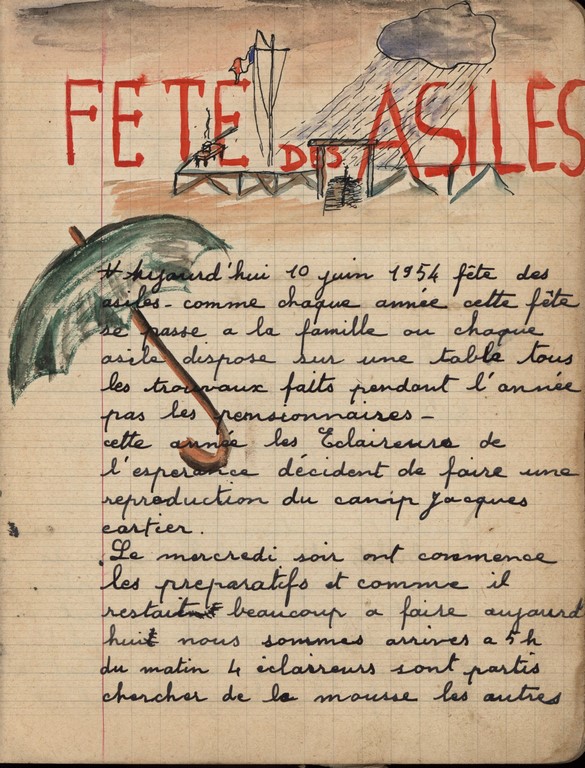 FETE DES ASILES
Aujourd'hui 10 juin 1954 fête des
asiles - comme chaque année cette fête
se passe a la famille ou chaque
asile dispose sur une table tous
les travaux faits pendant l'année
pas les pensionnaires -
cette année les Eclaireurs de
l'esperance décident de faire une
reproduction du camp Jacques
cartier.
Le mercredi soir ont commence
les preparatifs et comme il
restait beaucoup a faire aujourd
hui nous sommes arrives a 5h
du matin 4 éclaireurs sont partis
chercher de la mousse les autres